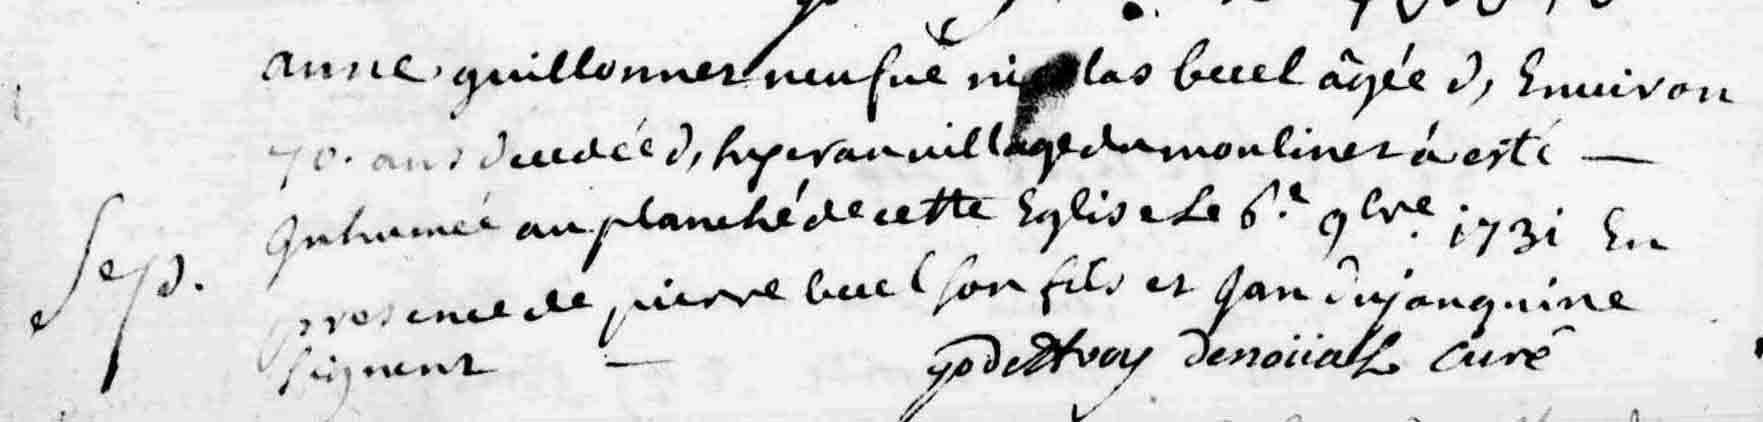 anne guillonnet neufue nicolas becel âgée d, Enuiron
70. ans decedée d, hyer au uillage du moulinet à esté —
Sep. Inhumée au planché de cette Eglise Le 6.e 9bre. 1731 En
presence de pierre becel son fils et Jan qui ne
signent — denoüal curé